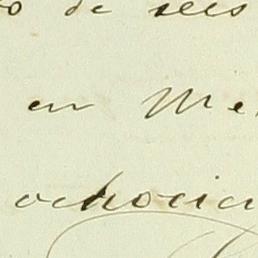 de seis
en Me
ochocien